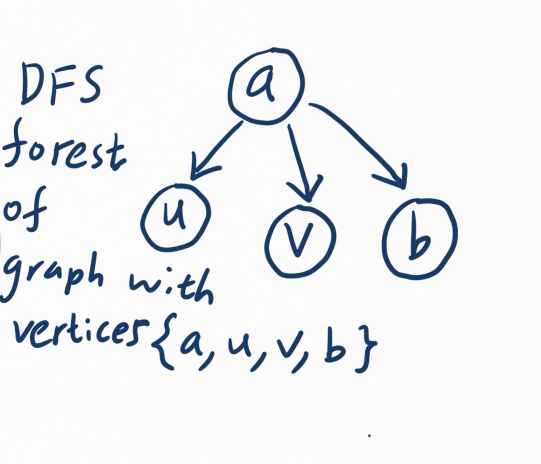 DFS
forest
of
graph with
vertices {a, u, v, b}
a
u
v
b